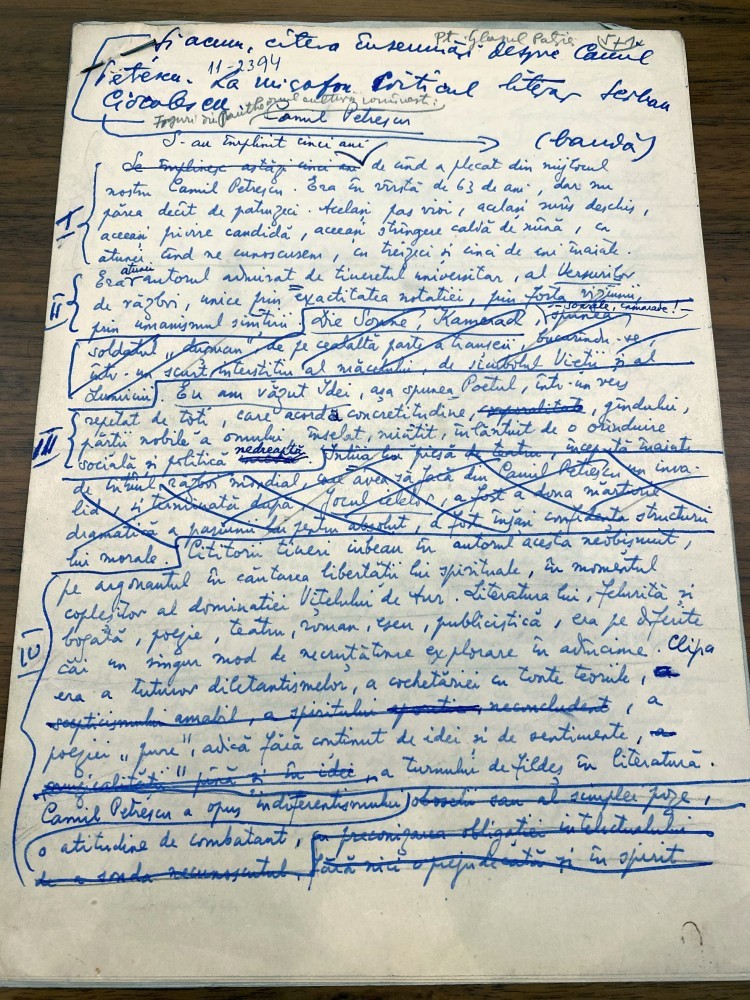 Pt. Glasul Patriei
Și acum, câteva însemnări despre Camil
Petrescu. La microfon criticul literar Șerban
11-2394
Cioculescu
Figuri din pantheonul culturii românești:
Camil Petrescu
(bandă)
S-au împlinit cinci ani
Se împlinesc astăzi cinci ani de cînd a plecat din mijlocul
nostru Camil Petrescu. Era în vîrstă de 63 de ani, dar nu
părea decît de patruzeci. Același pas vioi, același surîs deschis,
aceeași privire candidă, aceeași strîngere caldă de mînă, ca
atunci cînd ne cunoscusem, cu treizeci și cinci de ani înainte.
I
Era atunci autorul admirat de tineretul universitar, al Versurilor
de război, unice prin exactitatea notației, prin forța viziunii,
II
prin umanismul simțirii Die Sonne, Kamerad, spunea
— soarele, camarade! —
soldatul "dușman", de pe cealaltă parte a tranșeii, bucurîndu-se,
într-un scurt interstițiu al măcelului, de simbolul Vieții și al
Luminii. Eu am văzut Idei, așa spunea Poetul, într-un vers
repetat de toți, care acordă concretitudine, gîndului,
III
părții nobile a omului înșelat, mințit, înlănțuit de o orînduire
socială și politică nedreaptă Întîia lui piesă de teatru, începută înainte
de întîiul război mondial, care avea să facă din Camil Petrescu un inva-
lid, și terminată după Jocul ielelor, a fost a doua martoră
dramatică a pasiunii lui pentru absolut, a fost însăși confidența structurii
lui morale. Cititorii tineri iubeau în autorul acesta neobișnuit,
pe argonautul în căutarea libertății lui spirituale, în momentul
copleșitor al dominației Vițelului de Aur. Literatura lui, felurită și
bogată, poezie, teatru, roman, eseu, publicistică, era pe diferite
căi un singur mod de necruțătoare explorare în adîncime. Clipa
era a tuturor diletantismelor, a cochetăriei cu toate teoriile, a
scepticismului amabil, a spiritului sportiv, neconcludent, a
poeziei "pure", adică fără conținut de idei și de sentimente, a
muzicalității "pînă și în idei", a turnului de fildeș în literatură.
Camil Petrescu a opus indiferentismului oboselii sau al simplei poze,
o atitudine de combatant, cu preconizarea obligației intelectualului
de a sonda necunoscutul, fără nici o prejudecată și în spirit